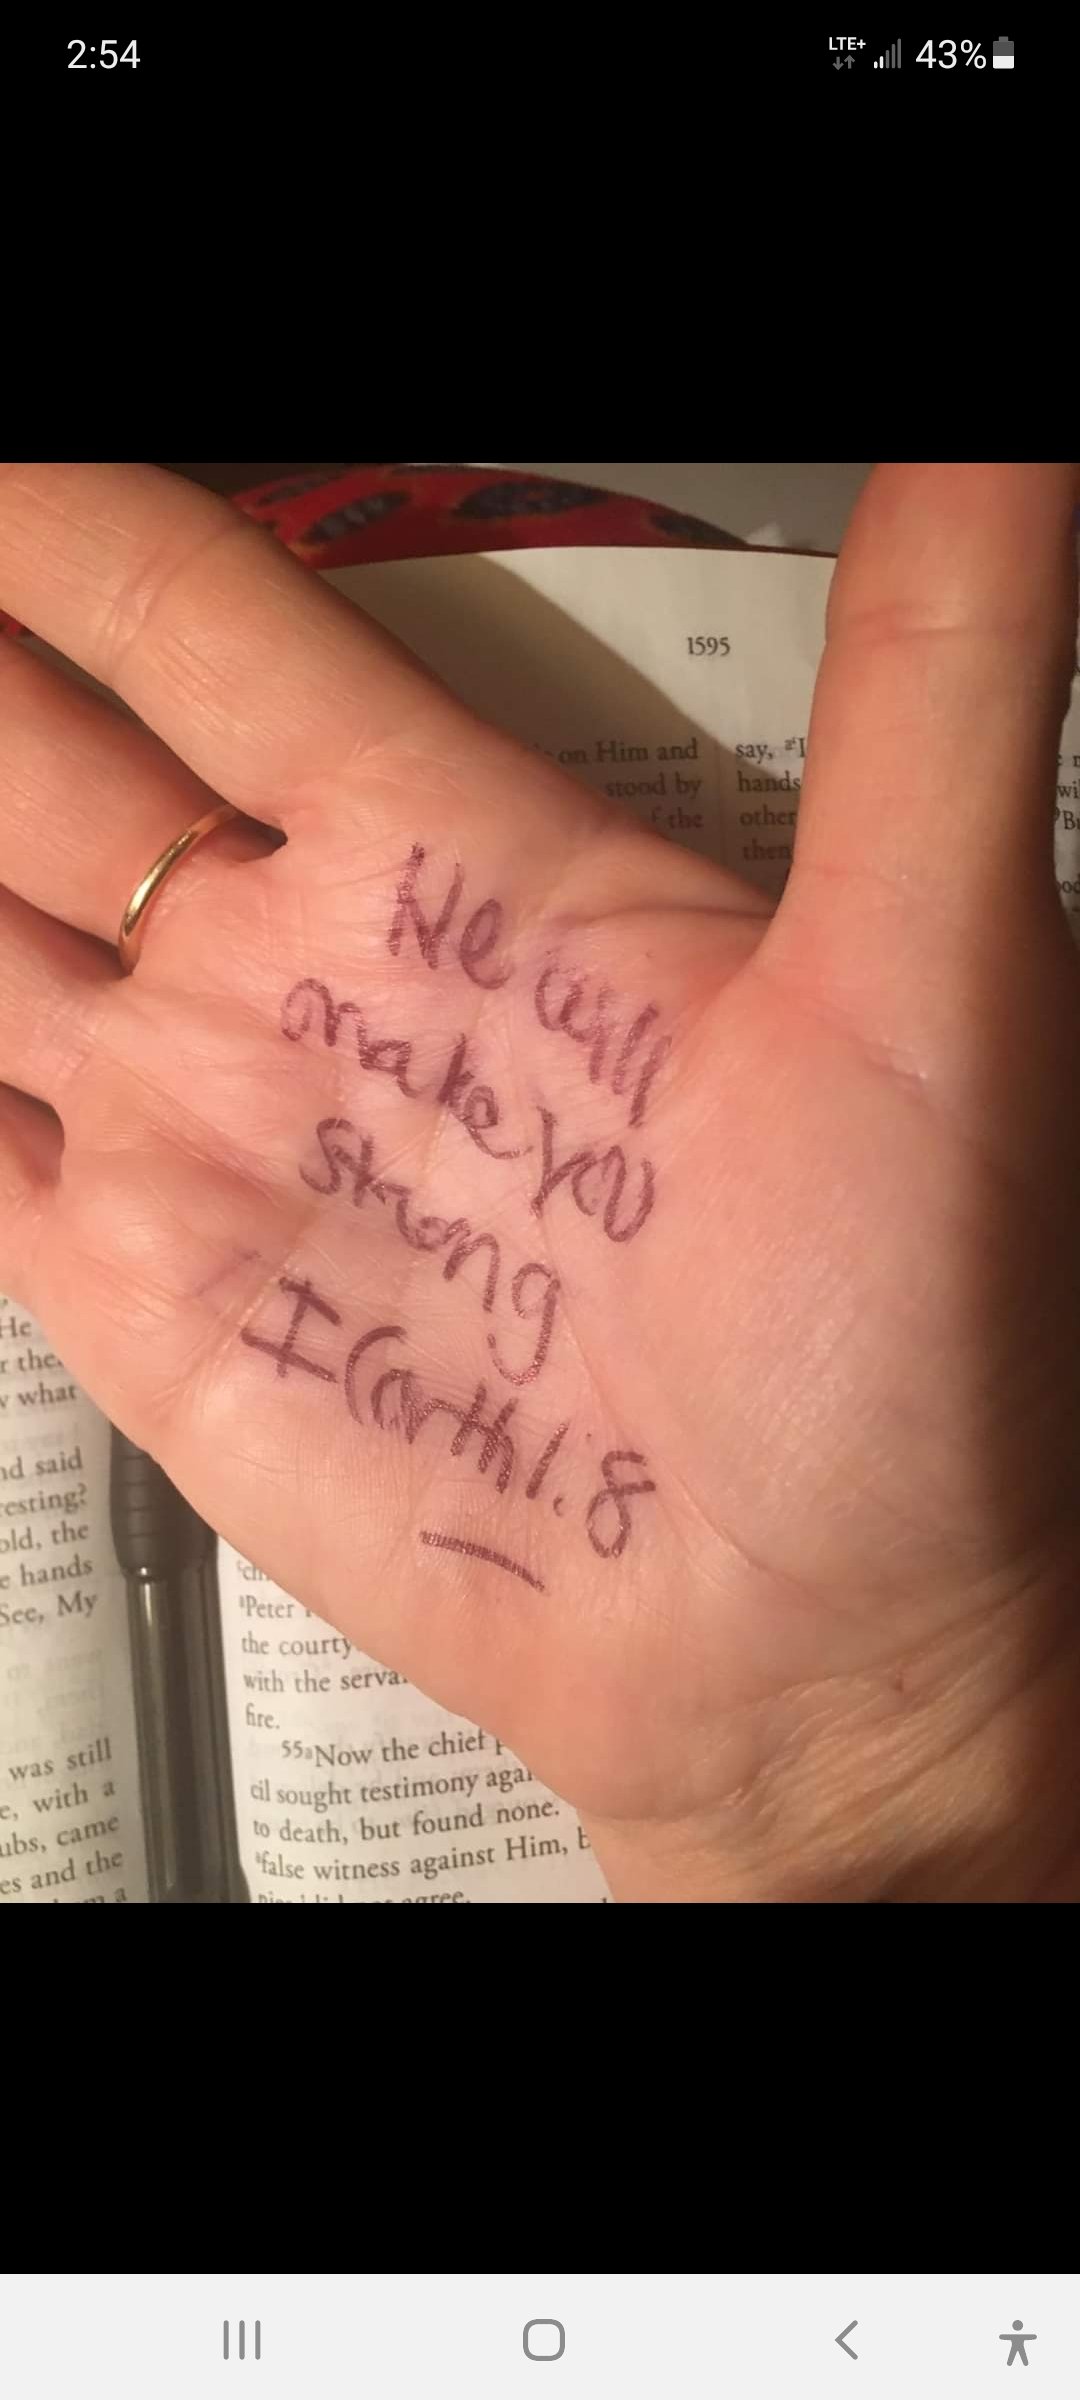 2:54 LTE+ 43%
1595
on Him and
stood by
the
say,
hands
other
then
He will
make you
strong
I Corth 1:8
He
what
said
old, the
hands
See, My
was still
with a
came
and the
a
Peter
the courty
with the serva
fire.
55 Now the chief
cil sought testimony agai
to death, but found none.
false witness against Him, b
agree.